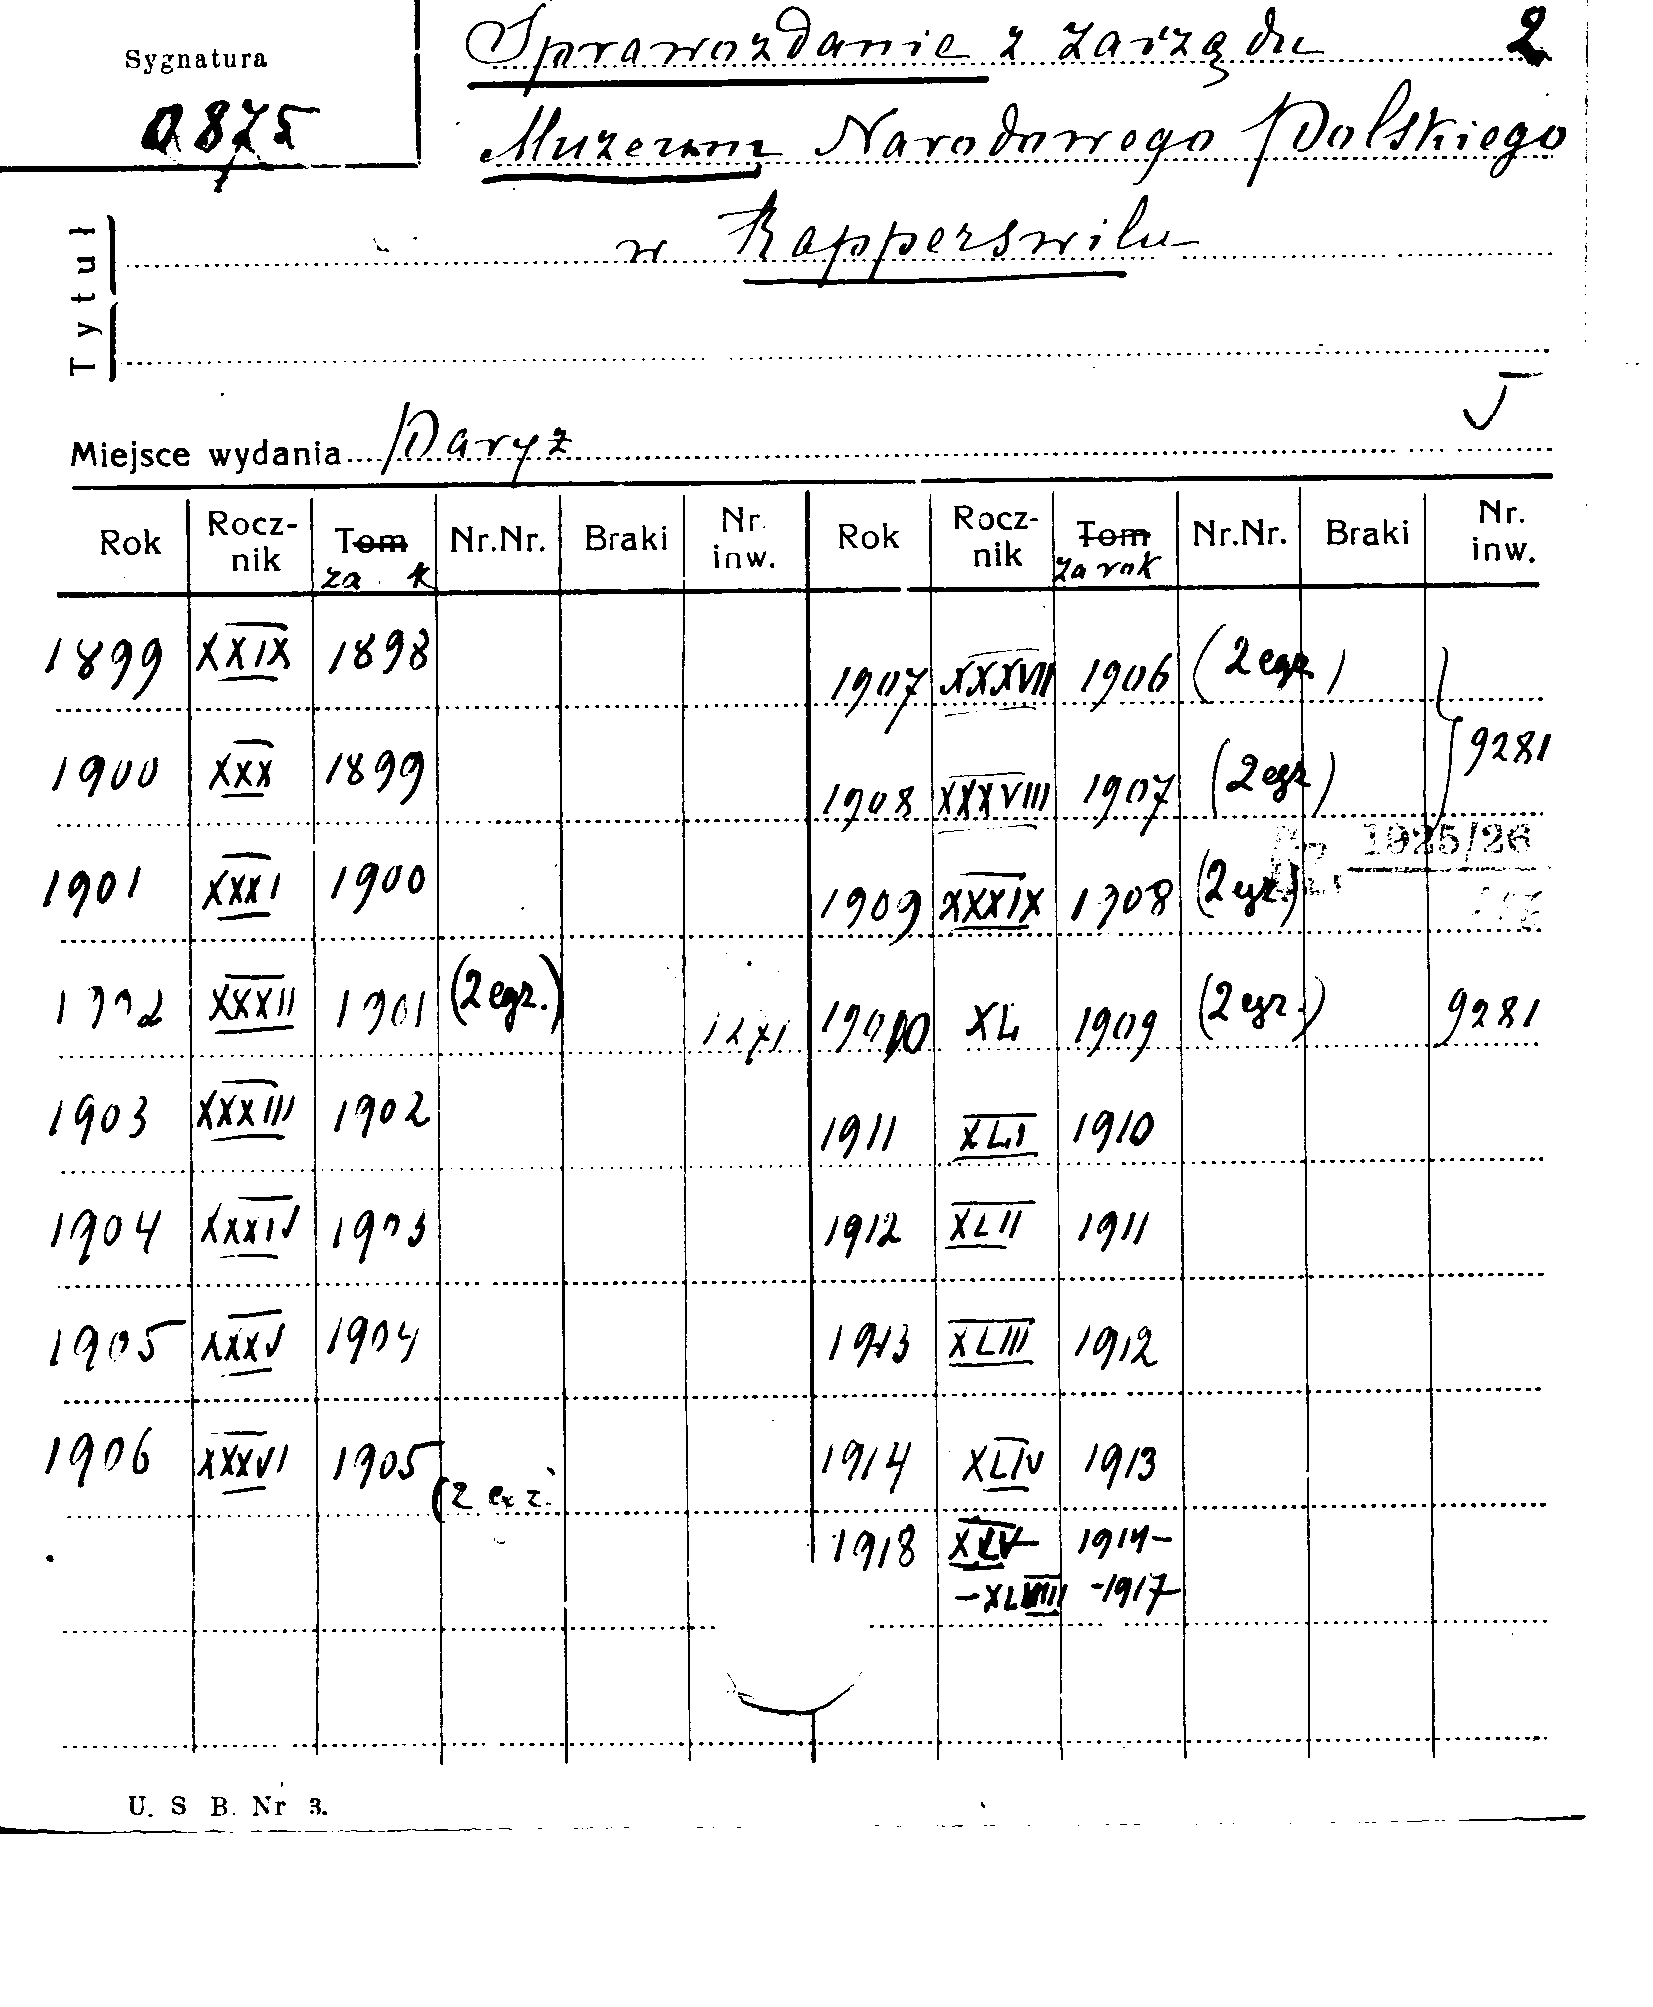 Sygnatura
0875
2
Sprawozdanie z zarządu
Muzeum Narodowego Polskiego
w Rapperswilu
Tytuł
Miejsce wydania Paryż
Rok Rocz-nik Tom Nr.Nr. Braki Nr. inw. Rok Rocz-nik Tom Nr.Nr. Braki Nr. inw.
za k za rok
1899 XXIX 1898 1907 XXXVII 1906 (2 egz.)
9281
1900 XXX 1899 1908 XXXVIII 1907 (2 egz.)
1925/26
1901 XXXI 1900 1909 XXXIX 1908 (2 egz.)
1902 XXXII 1901 (2 egz.) 1271 1910 XL 1909 (2 egz.) 9281
1903 XXXIII 1902 1911 XLI 1910
1904 XXXIV 1903 1912 XLII 1911
1905 XXXV 1904 1913 XLIII 1912
1906 XXXVI 1905 (2 egz. 1914 XLIV 1913
1918 XLV 1914-
-XLVIII -1917
U. S B. Nr 3.